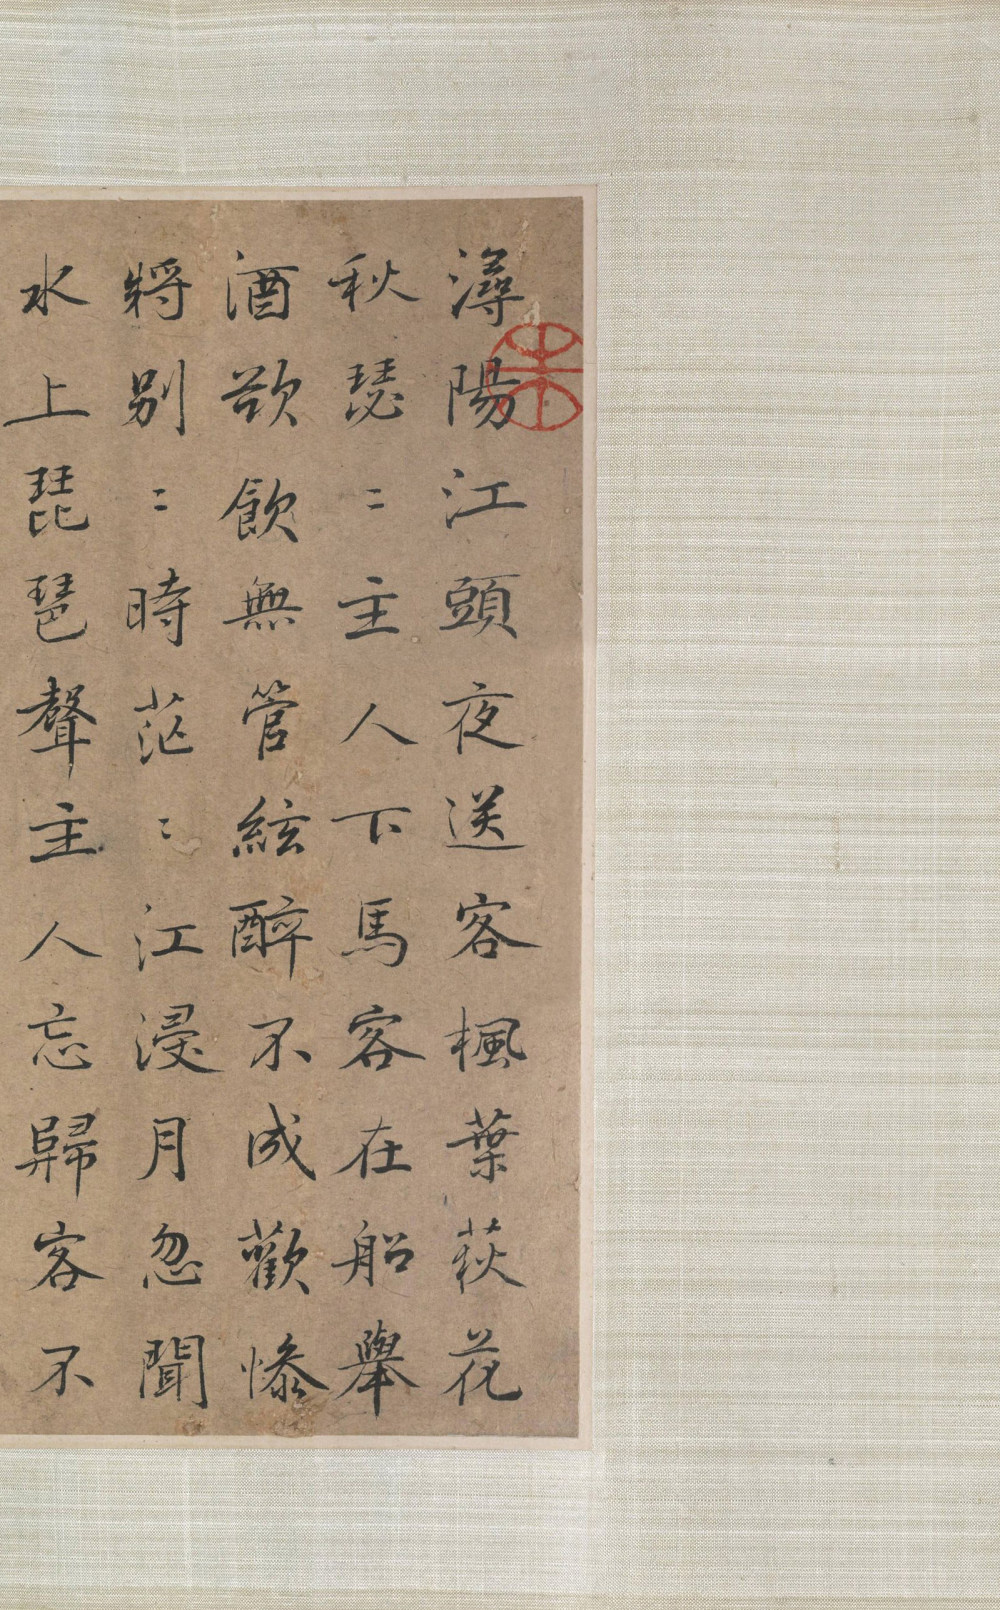 潯陽江頭夜送客楓葉荻花
秋瑟〻主人下馬客在船舉
酒欲飲無管絃醉不成歡慘
將别〻時茫〻江浸月忽聞
水上琵琶聲主人忘歸客不